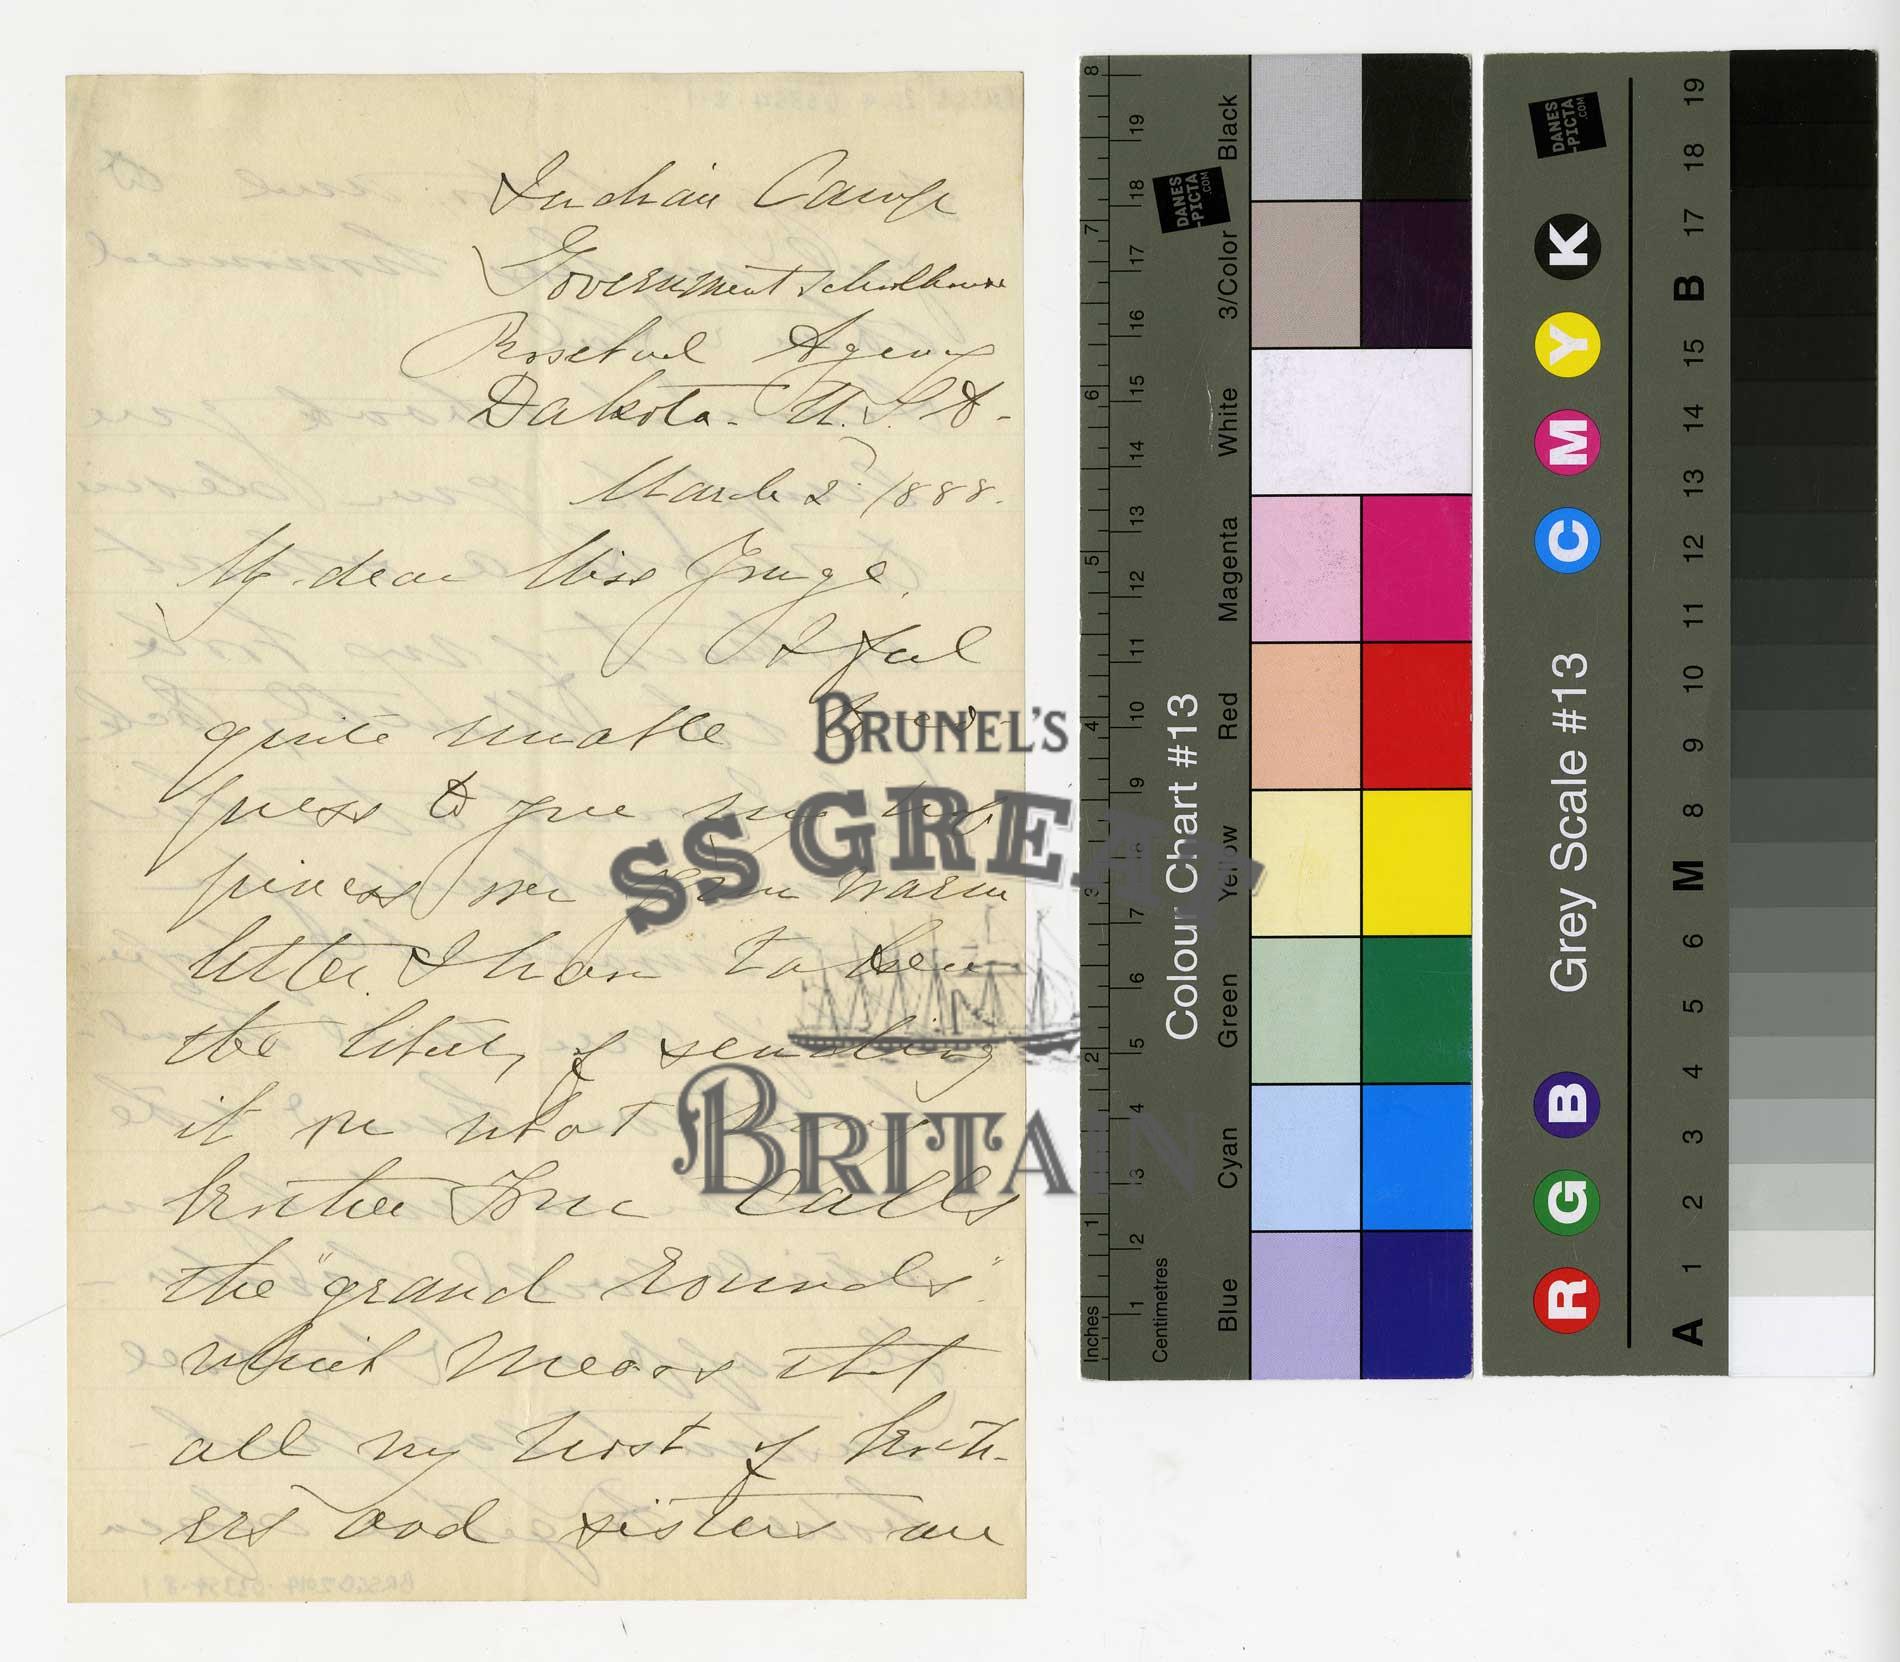 Indian Camp
Government schoolhouse
Rosebud Agency
Dakota. U.S.A.
March 2d 1888.
My dear Miss
I feel
quite unable to ex-
press to you my hap
piness on your warm
letter. I have taken
the liberty of sending
it on what my
brother calls
the "grand rounds"
which means that
all my host of broth-
ers and sisters are
BRUNEL'S
SS GREAT
BRITAIN
Inches
1
2
3
4
5
6
7
8
Centimetres
1
2
3
4
5
6
7
8
9
10
11
12
13
14
15
16
17
18
19
Colour Chart #13
DANES
-PICTA
.COM
Blue
Cyan
Green
Yellow
Red
Magenta
White
3/Color
Black
Grey Scale #13
R
G
B
C
M
Y
K
DANES
-PICTA
.COM
A
1
2
3
4
5
6
M
8
9
10
11
12
13
14
15
B
17
18
19